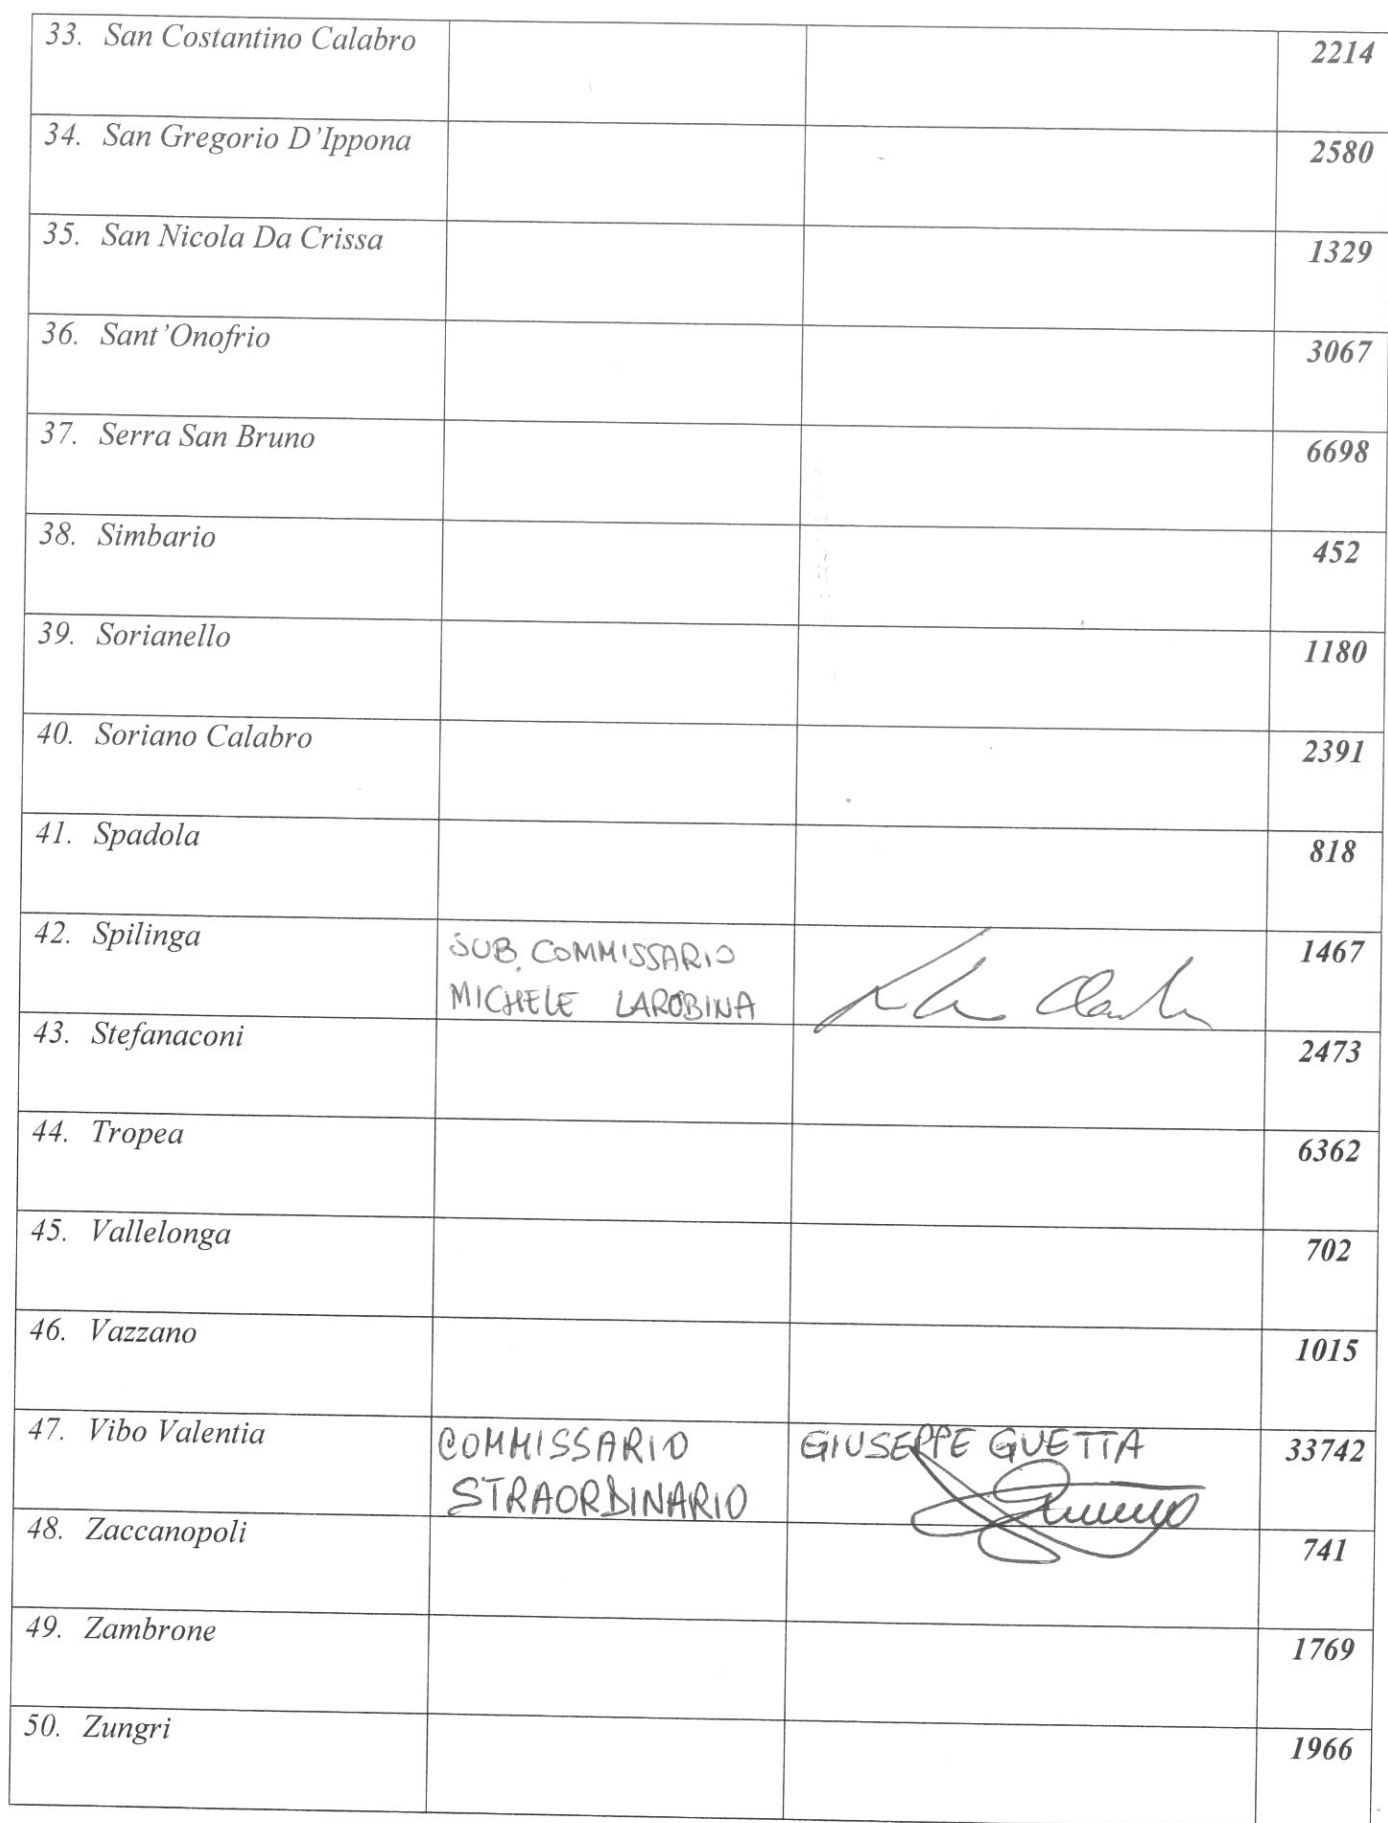 33. San Costantino Calabro 2214
34. San Gregorio D'Ippona 2580
35. San Nicola Da Crissa 1329
36. Sant'Onofrio 3067
37. Serra San Bruno 6698
38. Simbario 452
39. Sorianello 1180
40. Soriano Calabro 2391
41. Spadola 818
42. Spilinga SUB. COMMISSARIO 1467
MICHELE LAROBINA
43. Stefanaconi 2473
44. Tropea 6362
45. Vallelonga 702
46. Vazzano 1015
47. Vibo Valentia COMMISSARIO GIUSEPPE GUETTA 33742
STRAORDINARIO
48. Zaccanopoli 741
49. Zambrone 1769
50. Zungri 1966